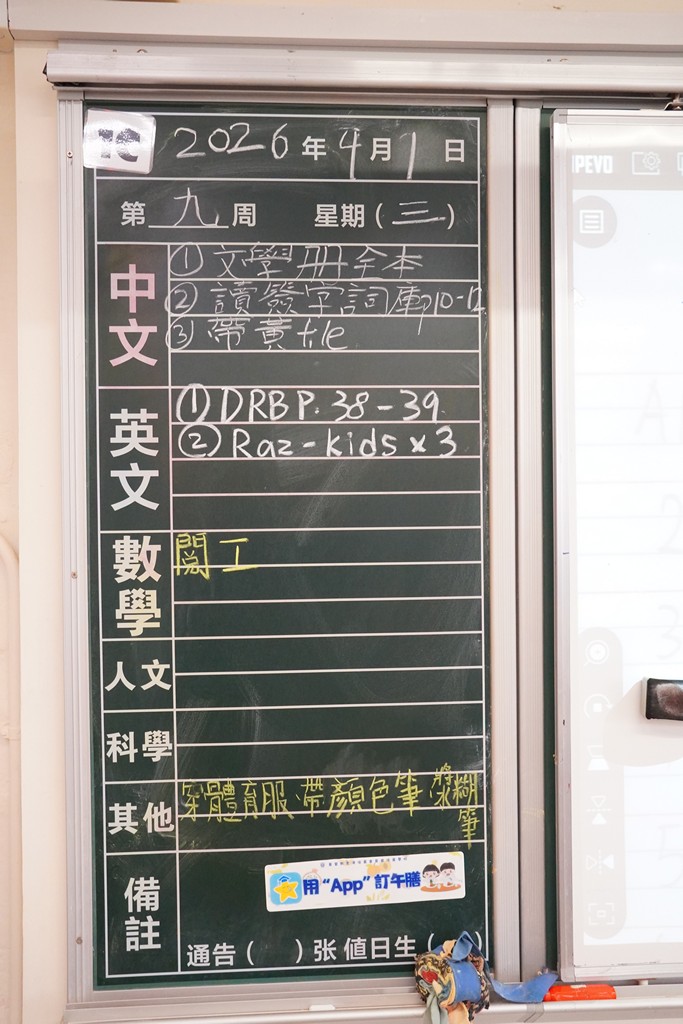 1C 2026年4月1日
第九周 星期(三)
中文
①文學册全本
②讀簽字詞庫p10-12
③帶黃file
英文
①DRBP.38-39
②Raz-kids×3
數學
閱工
人文
科學
其他
穿體育服、帶顏色筆、漿糊
筆
備註
用“App”訂午膳
通告( )张 值日生( )
IPEVO